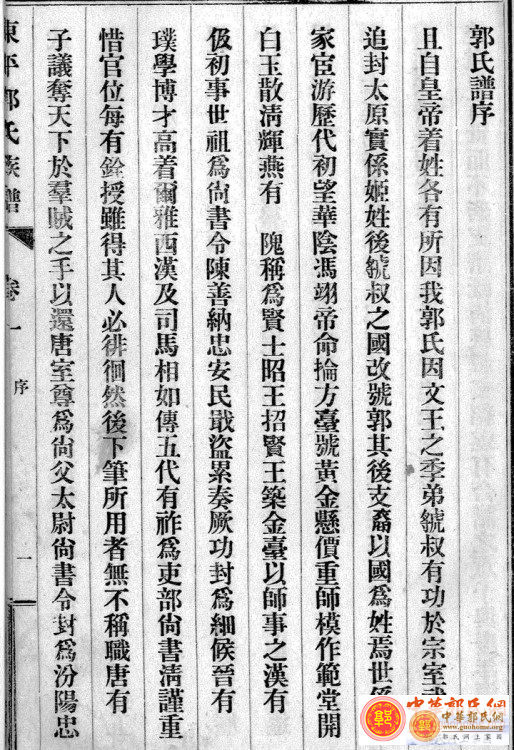 郭氏譜序
且自皇帝着姓各有所因我郭氏因文王之季弟虢叔有功於宗室武
追封太原實係姬姓後虢叔之國改號郭其後支裔以國爲姓焉世係
家宦游歷代初望華陰馮翊帝命掄方臺號黃金懸價重師模作範堂開
白玉散淸輝燕有 隗稱爲賢士昭王招賢王築金臺以師事之漢有
伋初事世祖爲尙書令陳善納忠安民戢盜累奏厥功封爲細候晉有
璞學博才高着爾雅西漢及司馬相如傳五代有祚爲吏部尙書淸謹重
惜官位每有銓授雖得其人必徘徊然後下筆所用者無不稱職唐有
子議奪天下於羣賊之手以還唐室尊爲尙父太尉尙書令封爲汾陽忠
東平郭氏族譜
卷一
序
一
中華郭氏網
中华郭氏网
www.guohome.org
郭氏網上家園